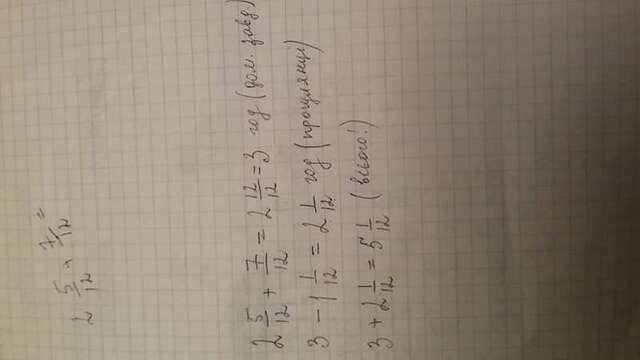 2 5/12 + 7/12 =
2 5/12 + 7/12 = 2 12/12 = 3 год (дом. завд)
3 - 1 1/12 = 2 1/12 год (прогулянці)
3 + 2 1/12 = 5 1/12 (всього!)